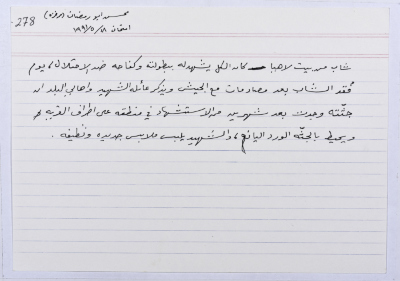 278-
محسن ابو رمضان (رفزة)
شاب من بيت لاهيا - كان الكل يشهد له ببطولته وكفاحه ضد الاحتلال، يوم
فُقد الشاب بعد مصادمات مع الجيش ويذكر عائلة الشهيد واهالي البلد ان
جثته وجدت بعد شهرين من الاستشهاد في منطقة على اطراف القرية
ويحيط بالجثه الورد اليانع، والشهيد يلبس ملابس جديده ونظيفه .